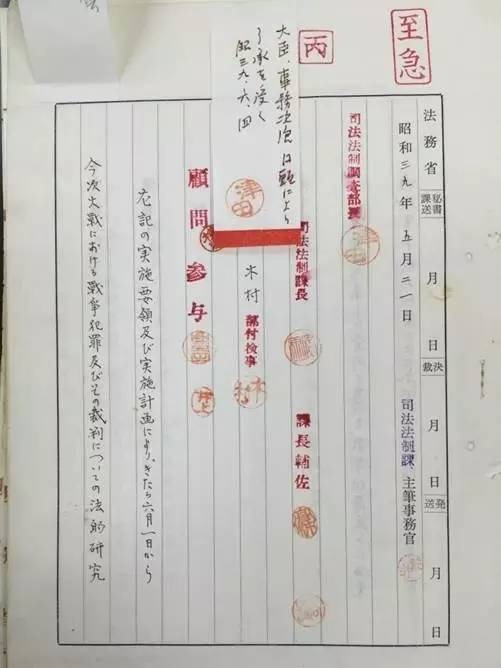 至急
丙
法務省 秘書課送 月 日 決裁 月 日 発送 月 日
昭和三九年 五月二一日 司法法制課、主筆事務官
司法法制調査部長
司法法制課長 課長補佐
大臣、事務次官は により
了承を受く
昭三九、六、四
津田
木村 部付検事
顧問 参与
左記の実施要領及び実施計画により、きたる六月一日から
今次大戦における戦争犯罪及びその裁判についての法的研究